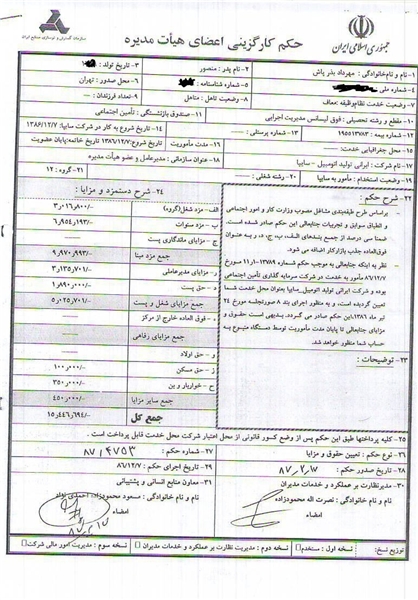 سازمان گسترش و نوسازی صنایع ایران
حکم کارگزینی اعضای هیأت مدیره
جمهوری اسلامی ایران
۱- نام و نام خانوادگی: مهرداد بذر پاش
۲- نام پدر: منصور
۳- تاریخ تولد:
۴- شماره ملی
۵- شماره شناسنامه:
۶- محل صدور: تهران
۷- وضعیت خدمت نظام وظیفه: معاف
۸- وضعیت تاهل: متاهل
۹- تعداد فرزندان:
۱۰- مقطع و رشته تحصیلی: فوق لیسانس مدیریت اجرایی
۱۱- صندوق بازنشستگی: تأمین اجتماعی
۱۲- شماره بیمه:
۱۳- شماره پرسنلی:
۱۴- تاریخ شروع به کار در شرکت سایپا: ۱۳۸۶/۱۲/۷
۱۵- محل جغرافیایی خدمت:
۱۶- مدت مأموریت
تاریخ شروع: ۱۳۸۶/۱۲/۷ تاریخ خاتمه: پایان عضویت
۱۷- نام شرکت: ایرانی تولید اتومبیل - سایپا
۱۸- عنوان سازمانی: مدیرعامل و عضو هیأت مدیره
۱۹- وضعیت استخدام: مأمور به سایپا
۲۰- رشته شغلی:
۲۱- گروه: ۱۲
۲۲- شرح حکم:
براساس طرح طبقه‌بندی مشاغل مصوب وزارت کار و امور اجتماعی
و انطباق سوابق و تجربیات جنابعالی این حکم صادر شده است.
ضمنا سی درصد از جمع بندهای الف، ب، ج، د، ر، به عنوان
فوق‌العاده جذب بازارکار اضافه می شود.
نظر به اینکه جنابعالی به موجب حکم شماره ۱۳۷۸۹-۱۱ مورخ
۸۶/۱۲/۷ مأمور به خدمت در شرکت سرمایه گذاری تأمین اجتماعی
بوده و شرکت ایرانی تولید اتومبیل سایپا بعنوان محل خدمت شما
تعیین گردیده است، و به منظور اجرای بند ۸ صورتجلسه مورخ ۲۴
تیر ماه ۱۳۸۶، این حکم صادر می گردد. بدیهی است حقوق و
مزایای جنابعالی تا پایان مدت مأموریت توسط دستگاه متبوع به
حساب شما منظور خواهد شد.
۲۳- توضیحات:
۲۴- شرح دستمزد و مزایا:
الف- مزد شغل (گروه) ۳٫۰۱۶٫۸۰۰/-
ب- مزد سنوات ۶٫۹۵۴٫۱۹۳/-
ج- مزایای ماندگاری پست
جمع مزد مبنا ۹٫۹۷۰٫۹۹۳/-
د- مزایای مدیرعاملی ۳٫۱۳۵٫۷۰۱/-
ر- حق پست ۱٫۸۹۰٫۰۰۰/-
جمع مزایای شغل و پست ۵٫۰۲۵٫۷۰۱/-
س- فوق العاده خارج از مرکز
جمع مزایای رفاهی
و- حق اولاد
ح- حق مسکن ۱۰۰٫۰۰۰/-
خ- خواربار و بن ۳۵۰٫۰۰۰/-
جمع سایر مزایا ۴۵۰٫۰۰۰/-
جمع کل ۱۵٫۴۴۶٫۶۹۴/-
۲۵- کلیه پرداختها طبق این حکم پس از وضع کسور قانونی از محل اعتبار شرکت محل خدمت قابل پرداخت است.
۲۶- نوع حکم: تعیین حقوق و مزایا
۲۷- شماره حکم: ۸۷/۴۷۵۳
۲۸- تاریخ صدور حکم: ۸۷/۲/۷
۲۹- تاریخ اجرای حکم: ۸۶/۱۲/۷
۳۰- مدیر نظارت بر عملکرد و خدمات مدیران
نام و نام خانوادگی: نصرت اله محمودزاده
امضاء
۳۱- معاون منابع انسانی و پشتیبانی
نام و نام خانوادگی: مسعود محمودزاده احمدی نژاد
امضاء
توزیع نسخ:
نسخه اول: مستخدم
نسخه دوم: مدیریت نظارت بر عملکرد و خدمات مدیران
نسخه سوم: مدیریت امور مالی شرکت